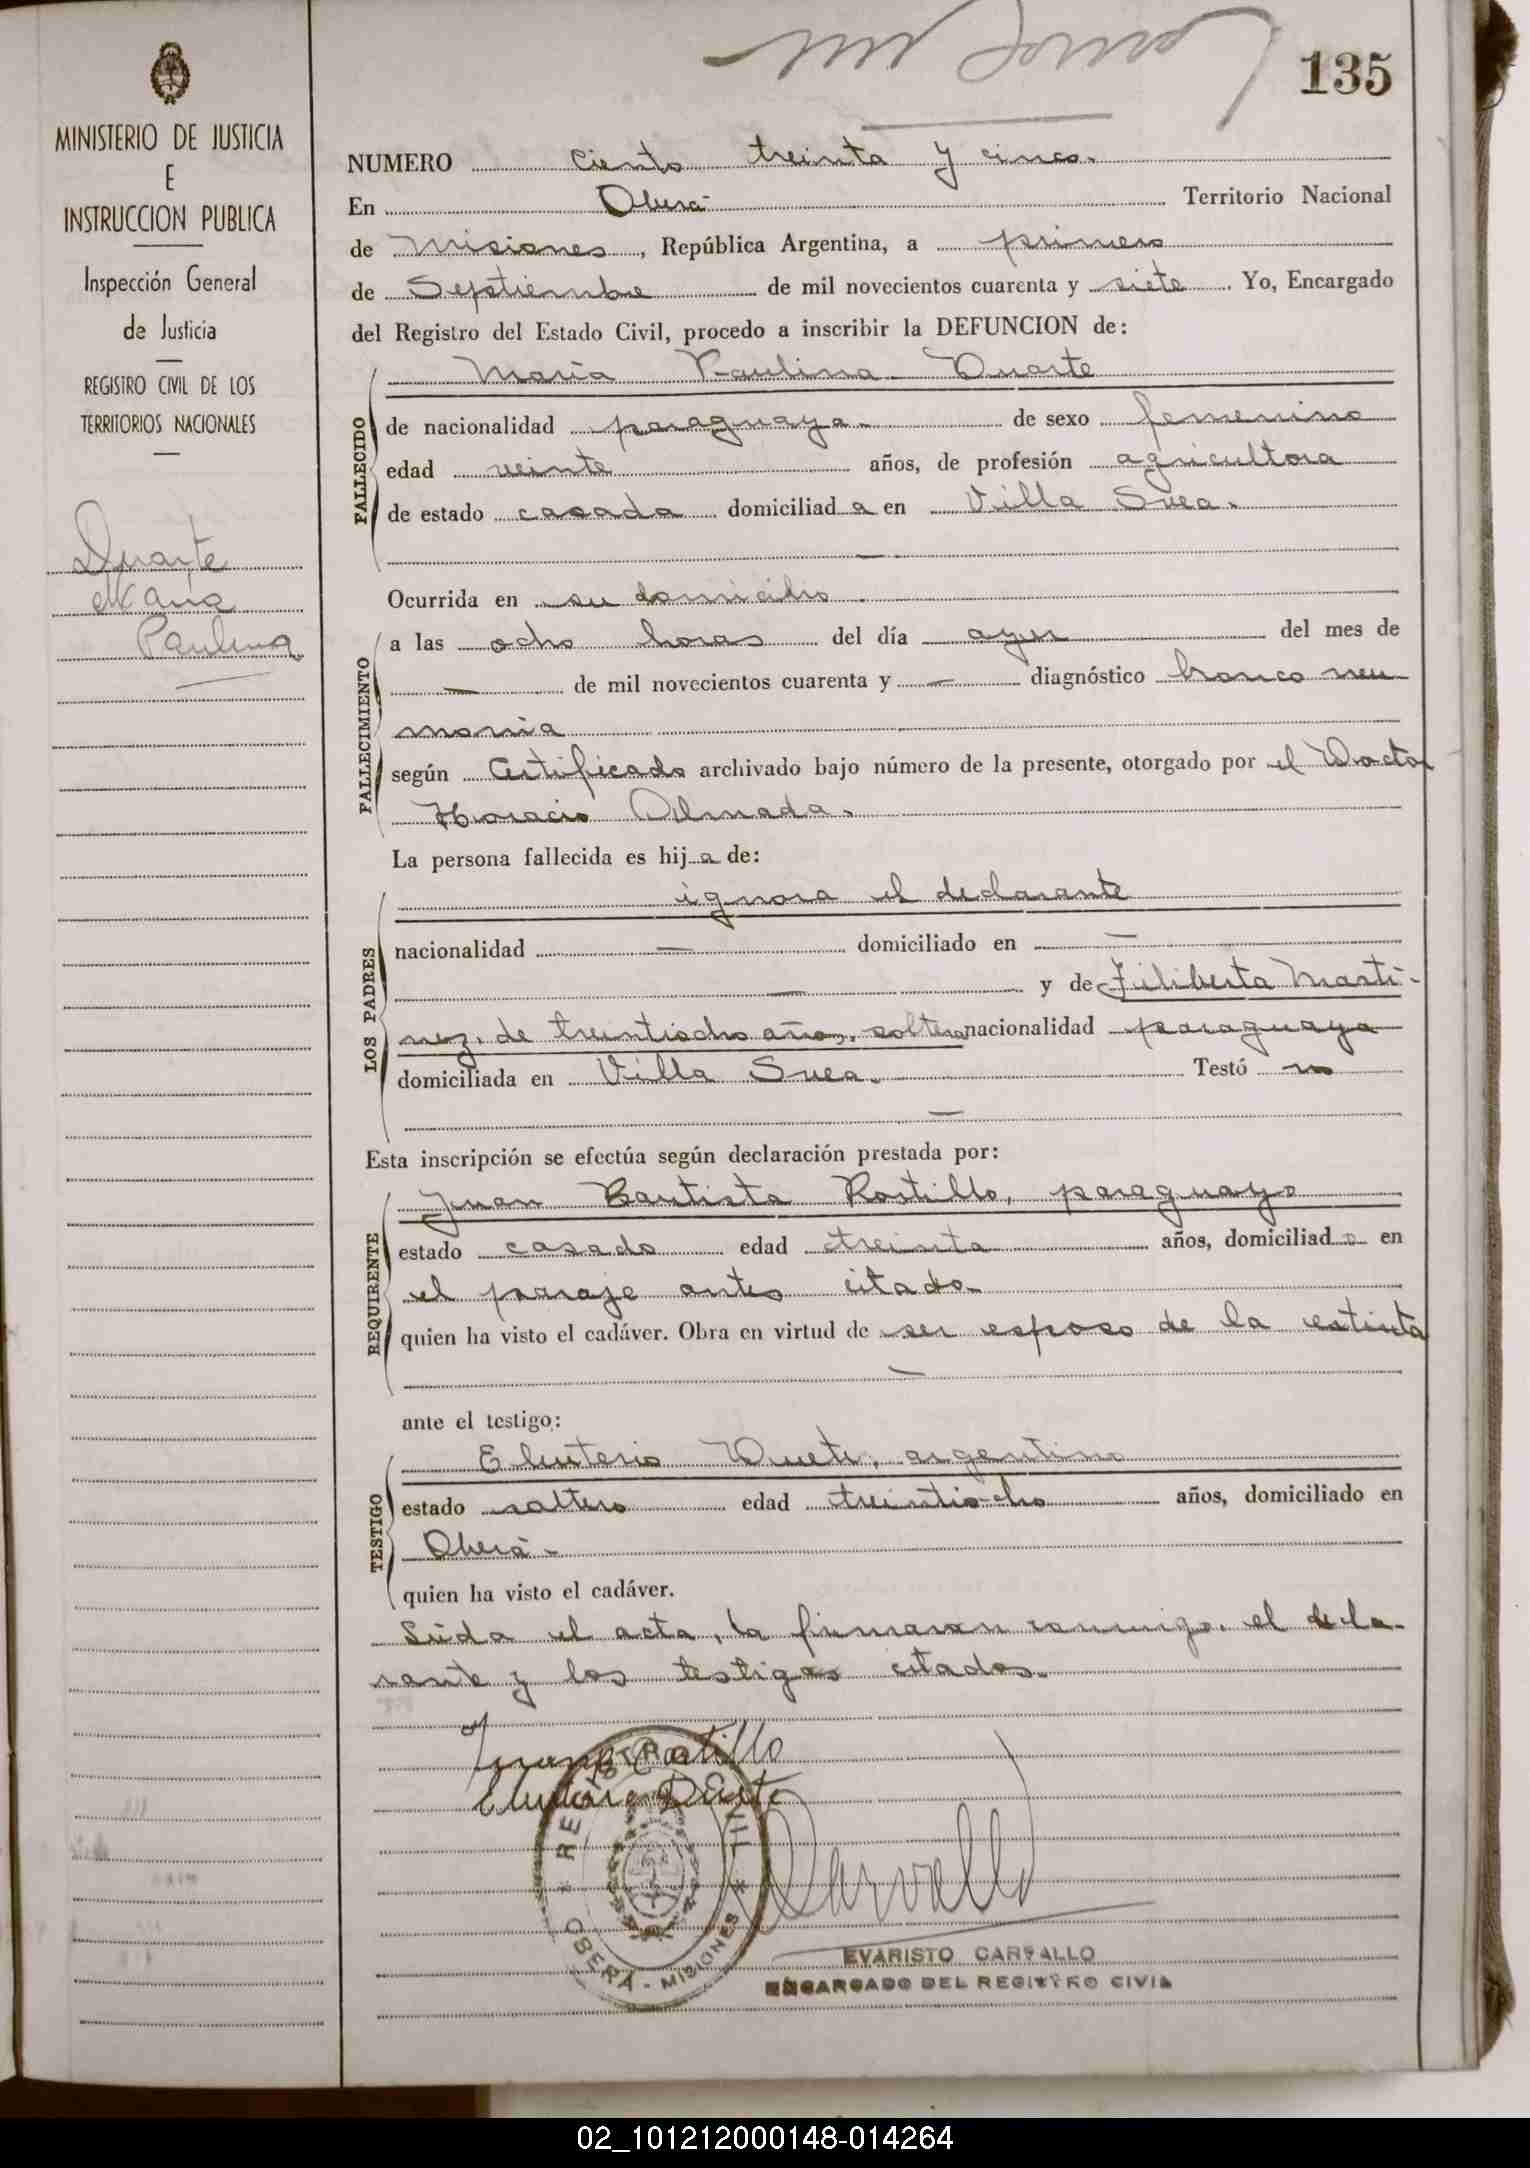 135
MINISTERIO DE JUSTICIA
E
INSTRUCCION PUBLICA
Inspección General
de Justicia
REGISTRO CIVIL DE LOS
TERRITORIOS NACIONALES
Duarte
Maria
Paulina
NUMERO Ciento treinta y cinco.
En Oberá Territorio Nacional
de Misiones, República Argentina, a primero
de Septiembre de mil novecientos cuarenta y siete. Yo, Encargado
del Registro del Estado Civil, procedo a inscribir la DEFUNCION de:
FALLECIDO
Maria Paulina Duarte
de nacionalidad paraguaya de sexo femenino
edad veinte años, de profesión agricultora
de estado casada domiciliad a en Villa Svea.
—
Ocurrida en su domicilio
FALLECIMIENTO
a las ocho horas del día ayer del mes de
— de mil novecientos cuarenta y — diagnóstico bronco neu
monia
según Certificado archivado bajo número de la presente, otorgado por el Doctor
Horacio Almada.
La persona fallecida es hij a de:
LOS PADRES
ignora el declarante
nacionalidad — domiciliado en —
— y de Filiberta Marti-
nez, de treintiocho años, soltera nacionalidad paraguaya
domiciliada en Villa Svea. Testó no
—
Esta inscripción se efectúa según declaración prestada por:
REQUIRENTE
Juan Bautista Rostillo, paraguayo
estado casado edad treinta años, domiciliad o en
el paraje antes citado
quien ha visto el cadáver. Obra en virtud de ser esposo de la estinta
—
ante el testigo:
TESTIGO
Eleuterio Duete, argentino
estado soltero edad treintiocho años, domiciliado en
Oberá
quien ha visto el cadáver.
Leida el acta, la firmaron conmigo, el decla-
rante y los testigos citados.
REGISTRO CIVIL
OBERÁ - MISIONES
Carvallo
EVARISTO CARVALLO
ENCARGADO DEL REGISTRO CIVIL
02_101212000148-014264